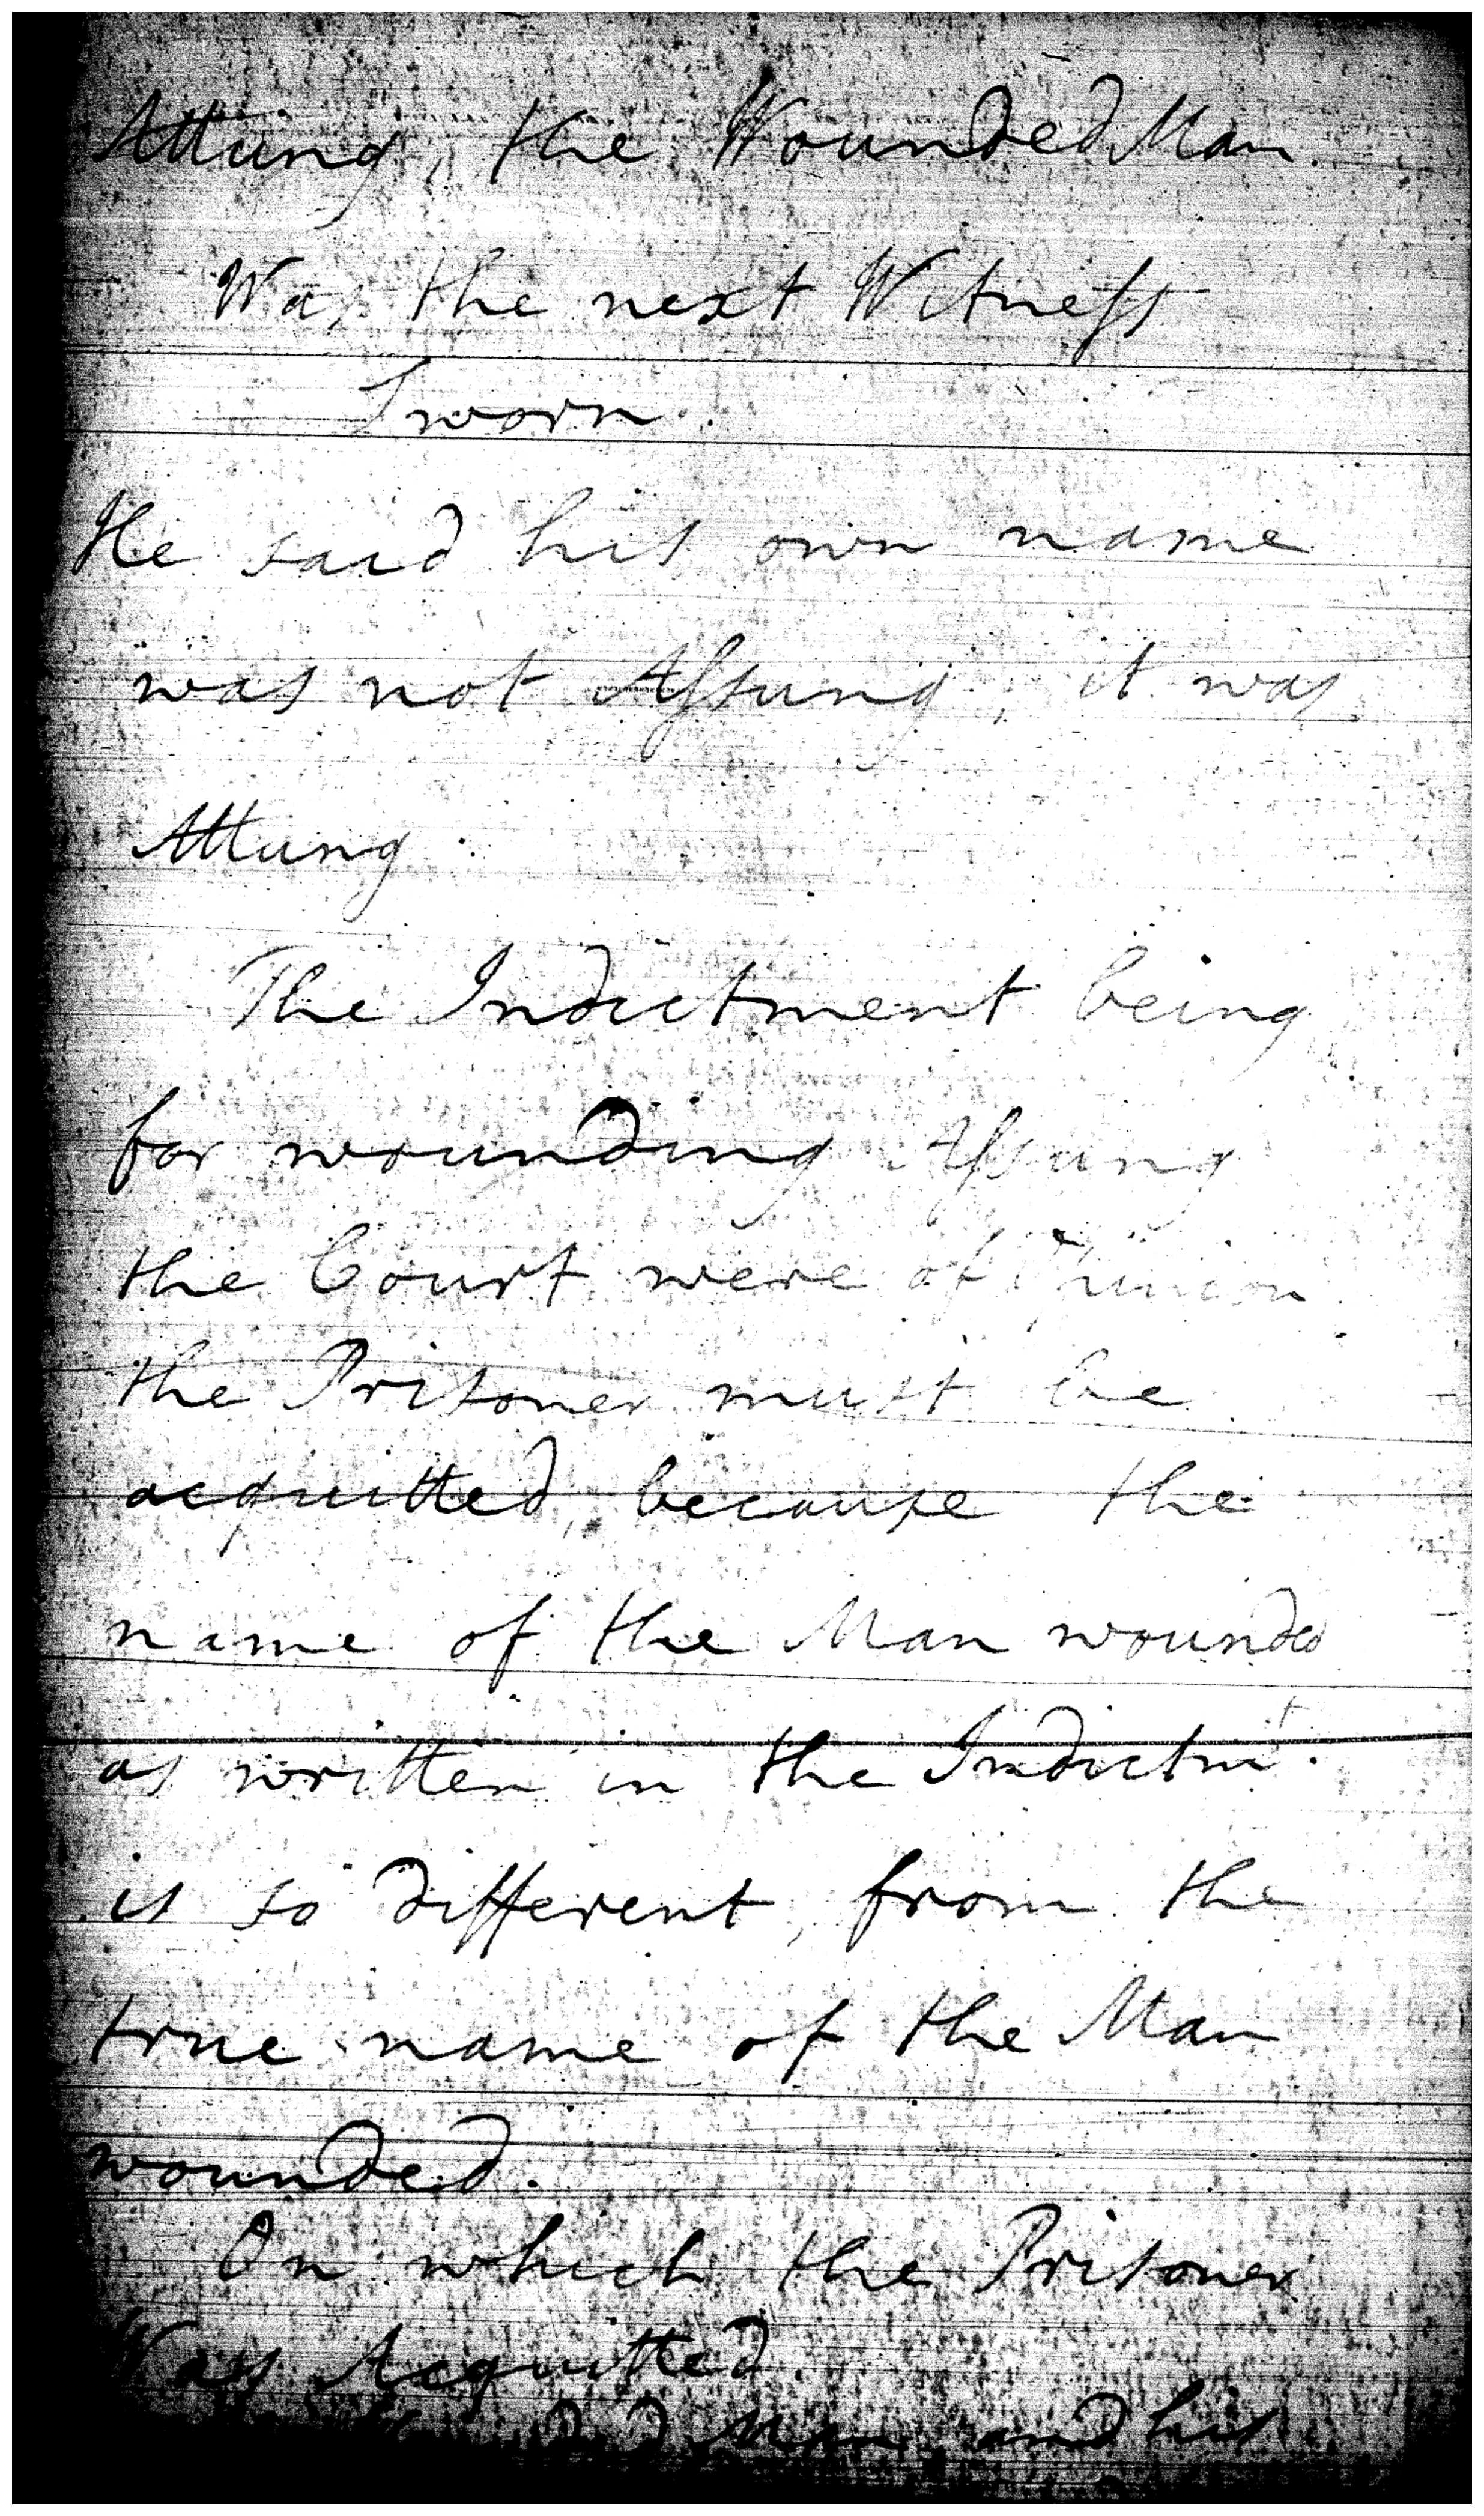 Attung, the Wounded Man.
Was the next Witness
Sworn.
He said his own name
was not Assung, it was
Attung.
The Indictment being
for wounding Assung
the Court were of Opinion
the Prisoner must be
acquitted, because the
name of the Man wounded
as written in the Indictmt.
is so different, from the
true name of the Man
wounded.
On which the Prisoner
Was Acquitted.
Man and his